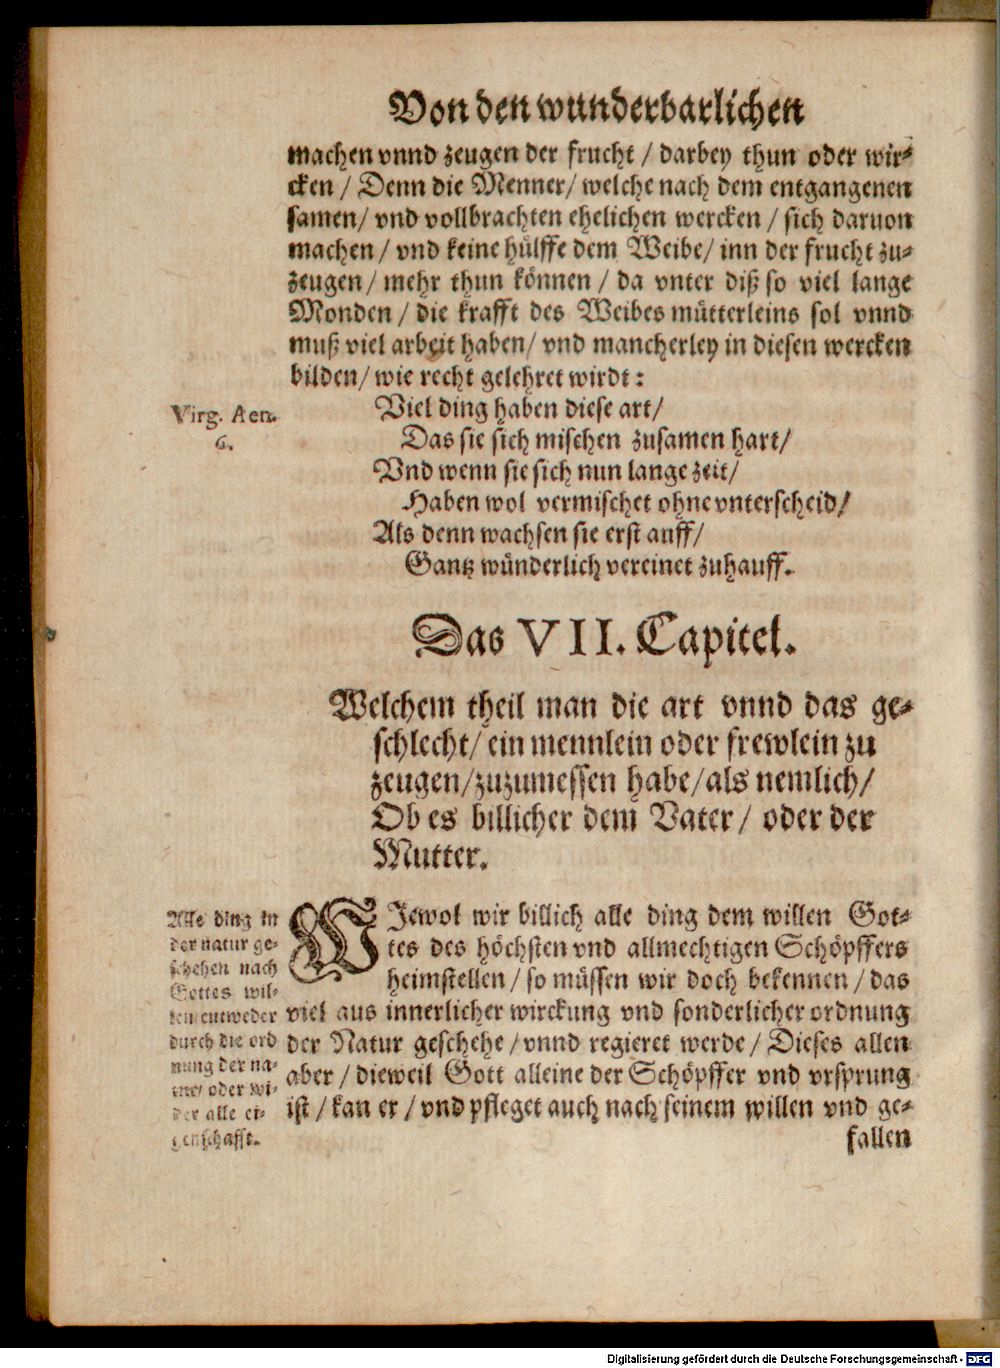 Von den wunderbarlichen
machen vnnd zeugen der frucht / darbey thun oder wir-
cken / Denn die Menner / welche nach dem entgangenen
samen / vnd vollbrachten ehelichen wercken / sich daruon
machen / vnd keine hülffe dem Weibe / inn der frucht zu-
zeugen / mehr thun können / da vnter diß so viel lange
Monden / die krafft des Weibes mütterleins sol vnnd
muß viel arbeit haben / vnd mancherley in diesen wercken
bilden / wie recht gelehret wirdt :
Virg. Aen.
6.
Viel ding haben diese art /
Das sie sich mischen zusamen hart /
Vnd wenn sie sich nun lange zeit /
Haben wol vermischet ohne vnterscheid /
Als denn wachsen sie erst auff /
Gantz wünderlich vereinet zuhauff.
Das VII. Capitel.
Welchem theil man die art vnnd das ge-
schlecht / ein mennlein oder frewlein zu
zeugen / zuzumessen habe / als nemlich /
Ob es billicher dem Vater / oder der
Mutter.
Alle ding in
der natur ge-
schehen nach
Gottes wil-
len / entweder
durch die ord
nung der na-
tur / oder wi-
der alle ei-
genschafft.
WJewol wir billich alle ding dem willen Got-
tes des höchsten vnd allmechtigen Schöpffers
heimstellen / so müssen wir doch bekennen / das
viel aus innerlicher wirckung vnd sonderlicher ordnung
der Natur geschehe / vnnd regieret werde / Dieses allen
aber / dieweil Gott alleine der Schöpffer vnd vrsprung
ist / kan er / vnd pfleget auch nach seinem willen vnd ge-
fallen
Digitalisierung gefördert durch die Deutsche Forschungsgemeinschaft - DFG